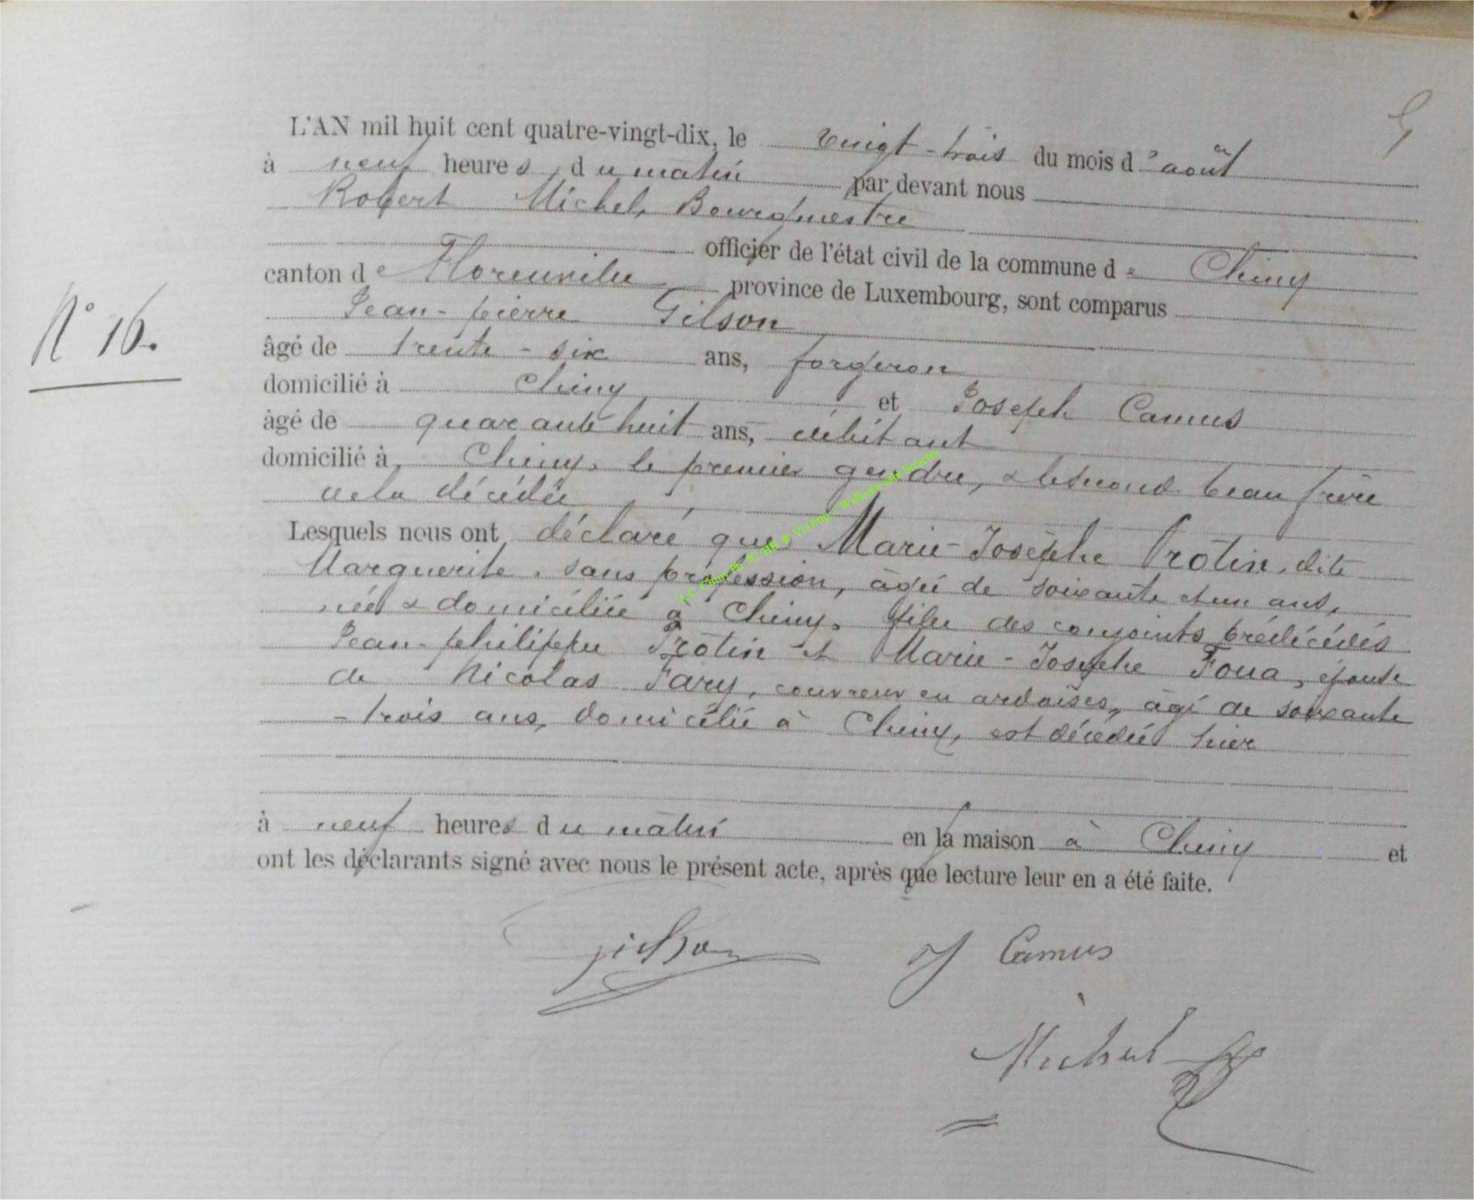 L'AN mil huit cent quatre-vingt-dix, le vingt-trois du mois d'août
à neuf heures du matin par devant nous
Robert Michel, Bourgmestre
officier de l'état civil de la commune de Chiny
canton de Florenville province de Luxembourg, sont comparus
Jean-pierre Gilson
N° 16.
âgé de trente-six ans, forgeron
domicilié à Chiny et Joseph Camus
âgé de quarante huit ans, débitant
domicilié à Chiny, le premier gendre, & le second beau frère
de la décédée
Lesquels nous ont déclaré que Marie-Josèphe Protin, dite
Marguerite, sans profession, âgée de soixante et un ans,
née & domiciliée à Chiny, fille des conjoints prédécédés
Jean-philippe Protin et Marie-Josephe Foua, épouse
de Nicolas Fary, couvreur en ardoises, âgé de soixante
-trois ans, domicilié à Chiny, est décédée hier
à neuf heures du matin en la maison à Chiny et
ont les déclarants signé avec nous le présent acte, après que lecture leur en a été faite.
Gilson J Camus
Michel